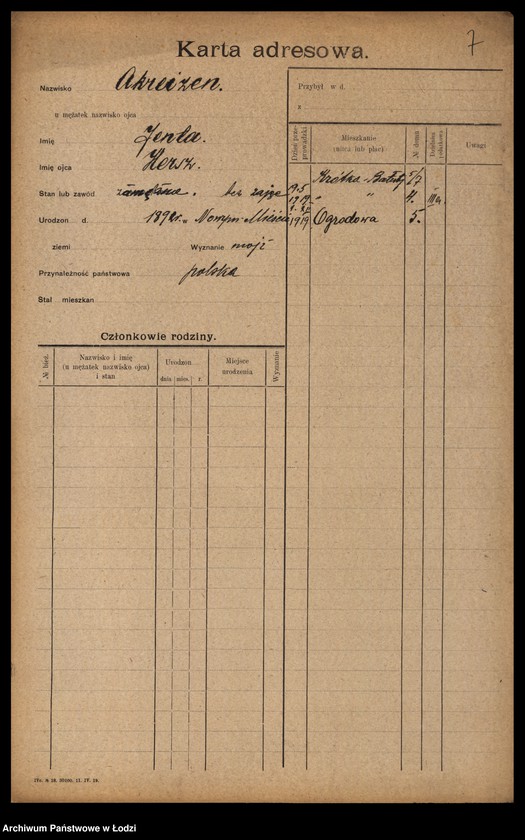 7
Karta adresowa.
Nazwisko Akreizen.
u mężatek nazwisko ojca
Imię Jenta.
Imię ojca Hersz.
Stan lub zawód zamężna. bez zaję
Urodzon d. 1892 r. w Nowym-Mieście
ziemi Wyznanie mojż
Przynależność państwowa polska
Stał mieszkan
Przybył w d.
z
Dzień przeprowadzki
Mieszkanie
(ulica lub plac)
№ domu
Dzielnica
Uwagi
Krótka-Bałuty 5/7
19 5
1919 " " 4. III a.
1919 Ogrodowa 5.
Członkowie rodziny.
№ bież.
Nazwisko i imię
(u mężatek nazwisko ojca)
i stan
Urodzon
dnia mies. r.
Miejsce
urodzenia
Wyznanie
Archiwum Państwowe w Łodzi